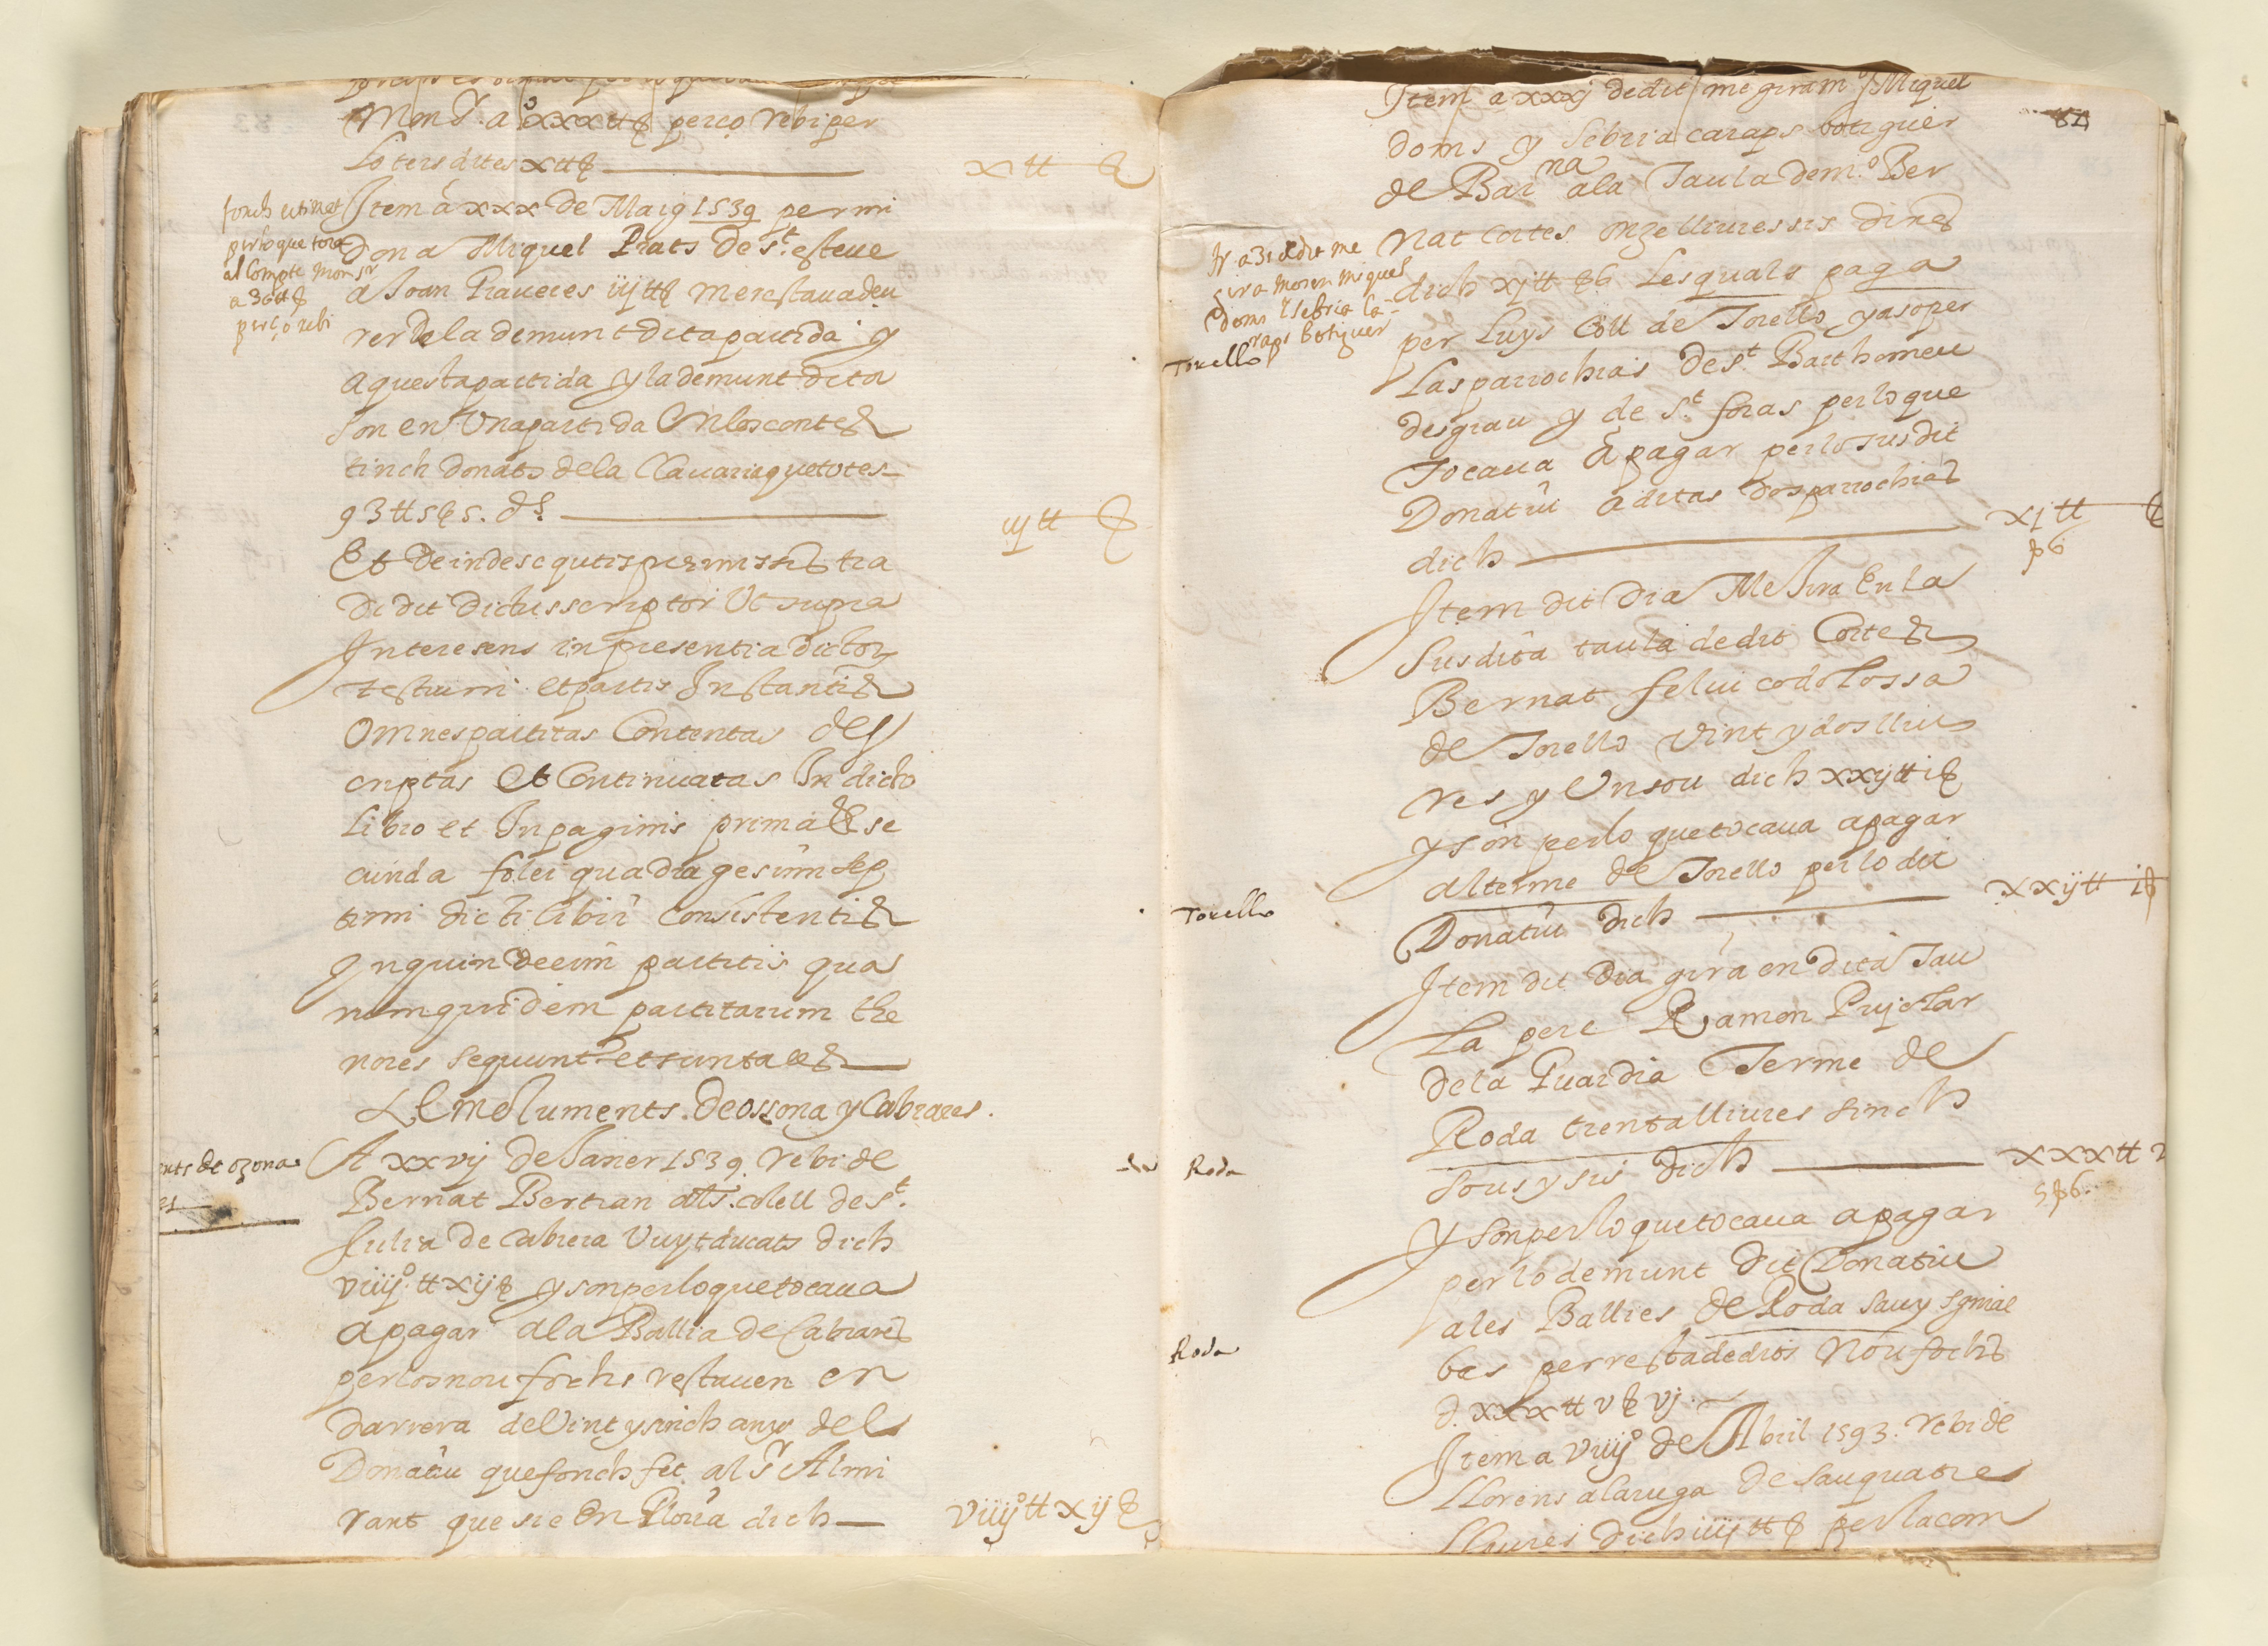 Mon Sr. a xxx tt ß perço rebi per
Lo ters dites x tt ß
x tt ß
fonch
perlo que toca
al Compte Monsr
a 36 tt ß
perço rebi
Item â xxx de Maig 1539 per mi
Dona Miquel Prats de st. esteue
a Joan Praueres iij tt ß me restaua deu
rer de la demunt dita partida y
aquesta partida y la demunt dita
son en Una partida En los contes
tinch donats de la Clauaria que totes
93 tt 5 ß 5. ds.
iij tt ß
Et deinde sequtis premissis tra
didit Dictus scriptor Ut supra
Interesens in presentia dictor
testium et partis Instantis
Omnes partitas Contentas des
criptas et Continuatas In dicto
Libro et In paginis prima et se
cunda folei quadragesim sep
timi dicti libri consistentis
In quindecim partitis qua
rumquidem partitarum the
nores sequunt et sunt tales
Lemoluments de ossona y Cabrares.
nts de ozona
es
A xxvij de Janer 1539. rebi de
Bernat Bertran als. colell de st.
Julia de Cabrera Vuyt ducats dich
viiijo. tt xij ß y son perlo que tocaua
a pagar a la Ballia de Cabrares
per los nou fochs restauen en
darrera de Vint y sinch anys del
Donatiu que fonch fet al sr Almi
rant que sie En Gloria dich
viiijo tt xij ß
84
Item a xxxj de dit me giram y Miquel
doms y Sebria caraps botiguer
de Barna a la Taula de mo. Ber
nat Cortes onze lliures sis dines
dich xj tt ß 6 Les quals paga
per Luys Coll de Torello y aso per
Las parrochias de st. Barthomeu
des grau y de st. foras perlo que
Tocaua â pagar perlo susdit
Donatiu a ditas dos parrochias
dich
xj tt ß
ß 6
It a 31 de dit me
gira mosen miquel
doms y sebria Ca-
raps botiguer
Torello
Item dit dia Me gira En la
susdita taula de dit Cortes
Bernat feliu codolossa
de Torello vint y dos lliu
res y Un sou dich xxij tt i ß
y son perlo que tocaua a pagar
al terme de Torello perlo dit
Donatiu dich
xxij tt i ß
Torello
Item dit dia gira en dita Tau
La pere Ramon Pujolar
de la Guardia Terme de
Roda trenta lliures sinch
sous y sis dich
xxx tt
5 ß 6.
Roda
y son perlo que tocaua a pagar
perlo demunt dit Donatiu
a les Ballies de Roda sauy
bes per resta de dits Nou fochs
d. xxx tt v ß vj.
Roda
Item a viiijo de Abril 1593. rebi de
Llorens alaruga de Sau quatre
Lliures dich iiij tt ß per la com